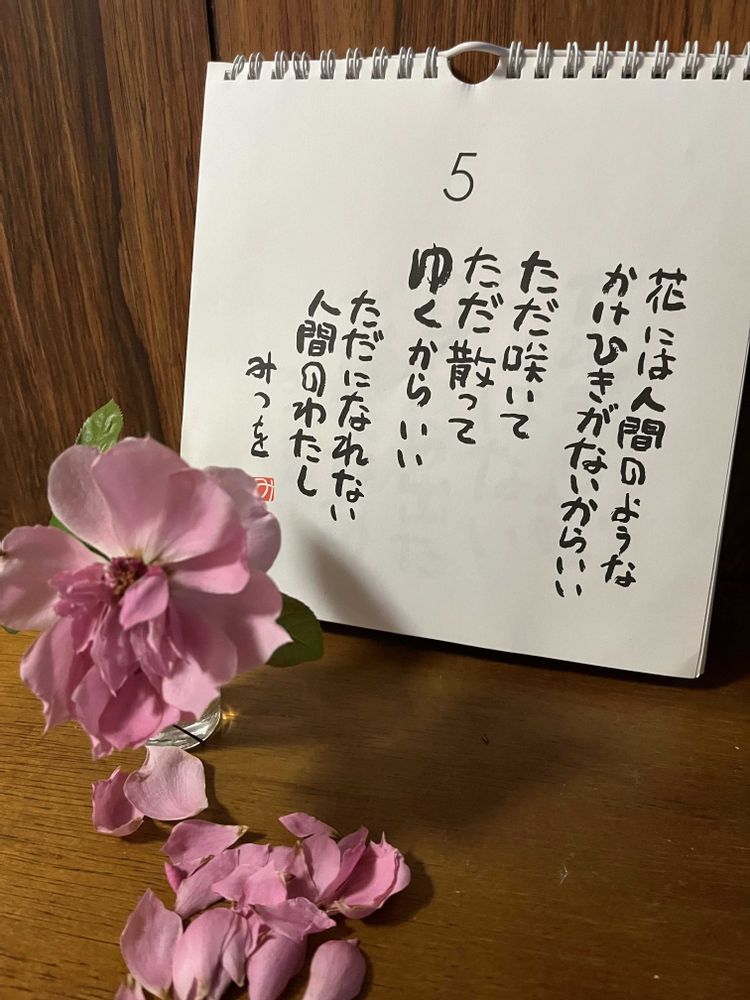 5
花には人間のような
かけひきがないからいい
ただ咲いて
ただ散って
ゆくからいい
ただになれない
人間のわたし
みつを
み